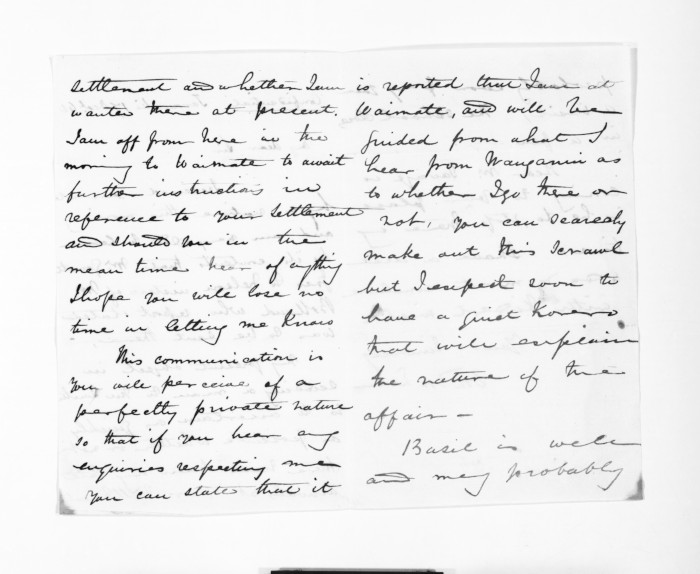 settlement and whether I am
wanted there at present.
I am off from here in the
morning to Waimate to await
further instructions in
reference to your settlement
and should you in the
mean time hear of anything
I hope you will lose no
time in letting me know
This communication is
you will perceive of a
perfectly private nature
so that if you hear any
enquiries respecting me
you can state that it
is reported that I am at
Waimate, and will be
guided from what I
hear from Wanganui as
to whether I go there or
not, you can scarcely
make out this scrawl
but I expect soon to
have a quiet Korero
that will explain
the nature of the
affair -
Basil is well
and may probably